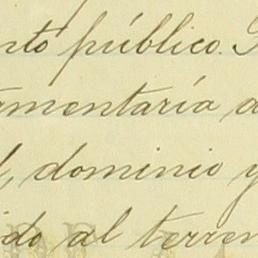 nto público.
mentaría a
l, dominio y
ido al terren